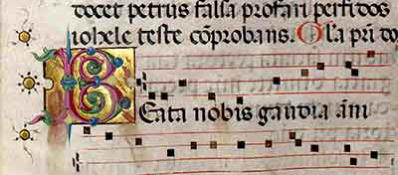 docet petrus falsa profani perfidos
iohele teste cōprobans. Gla pri do
BEata nobis gaudia āni